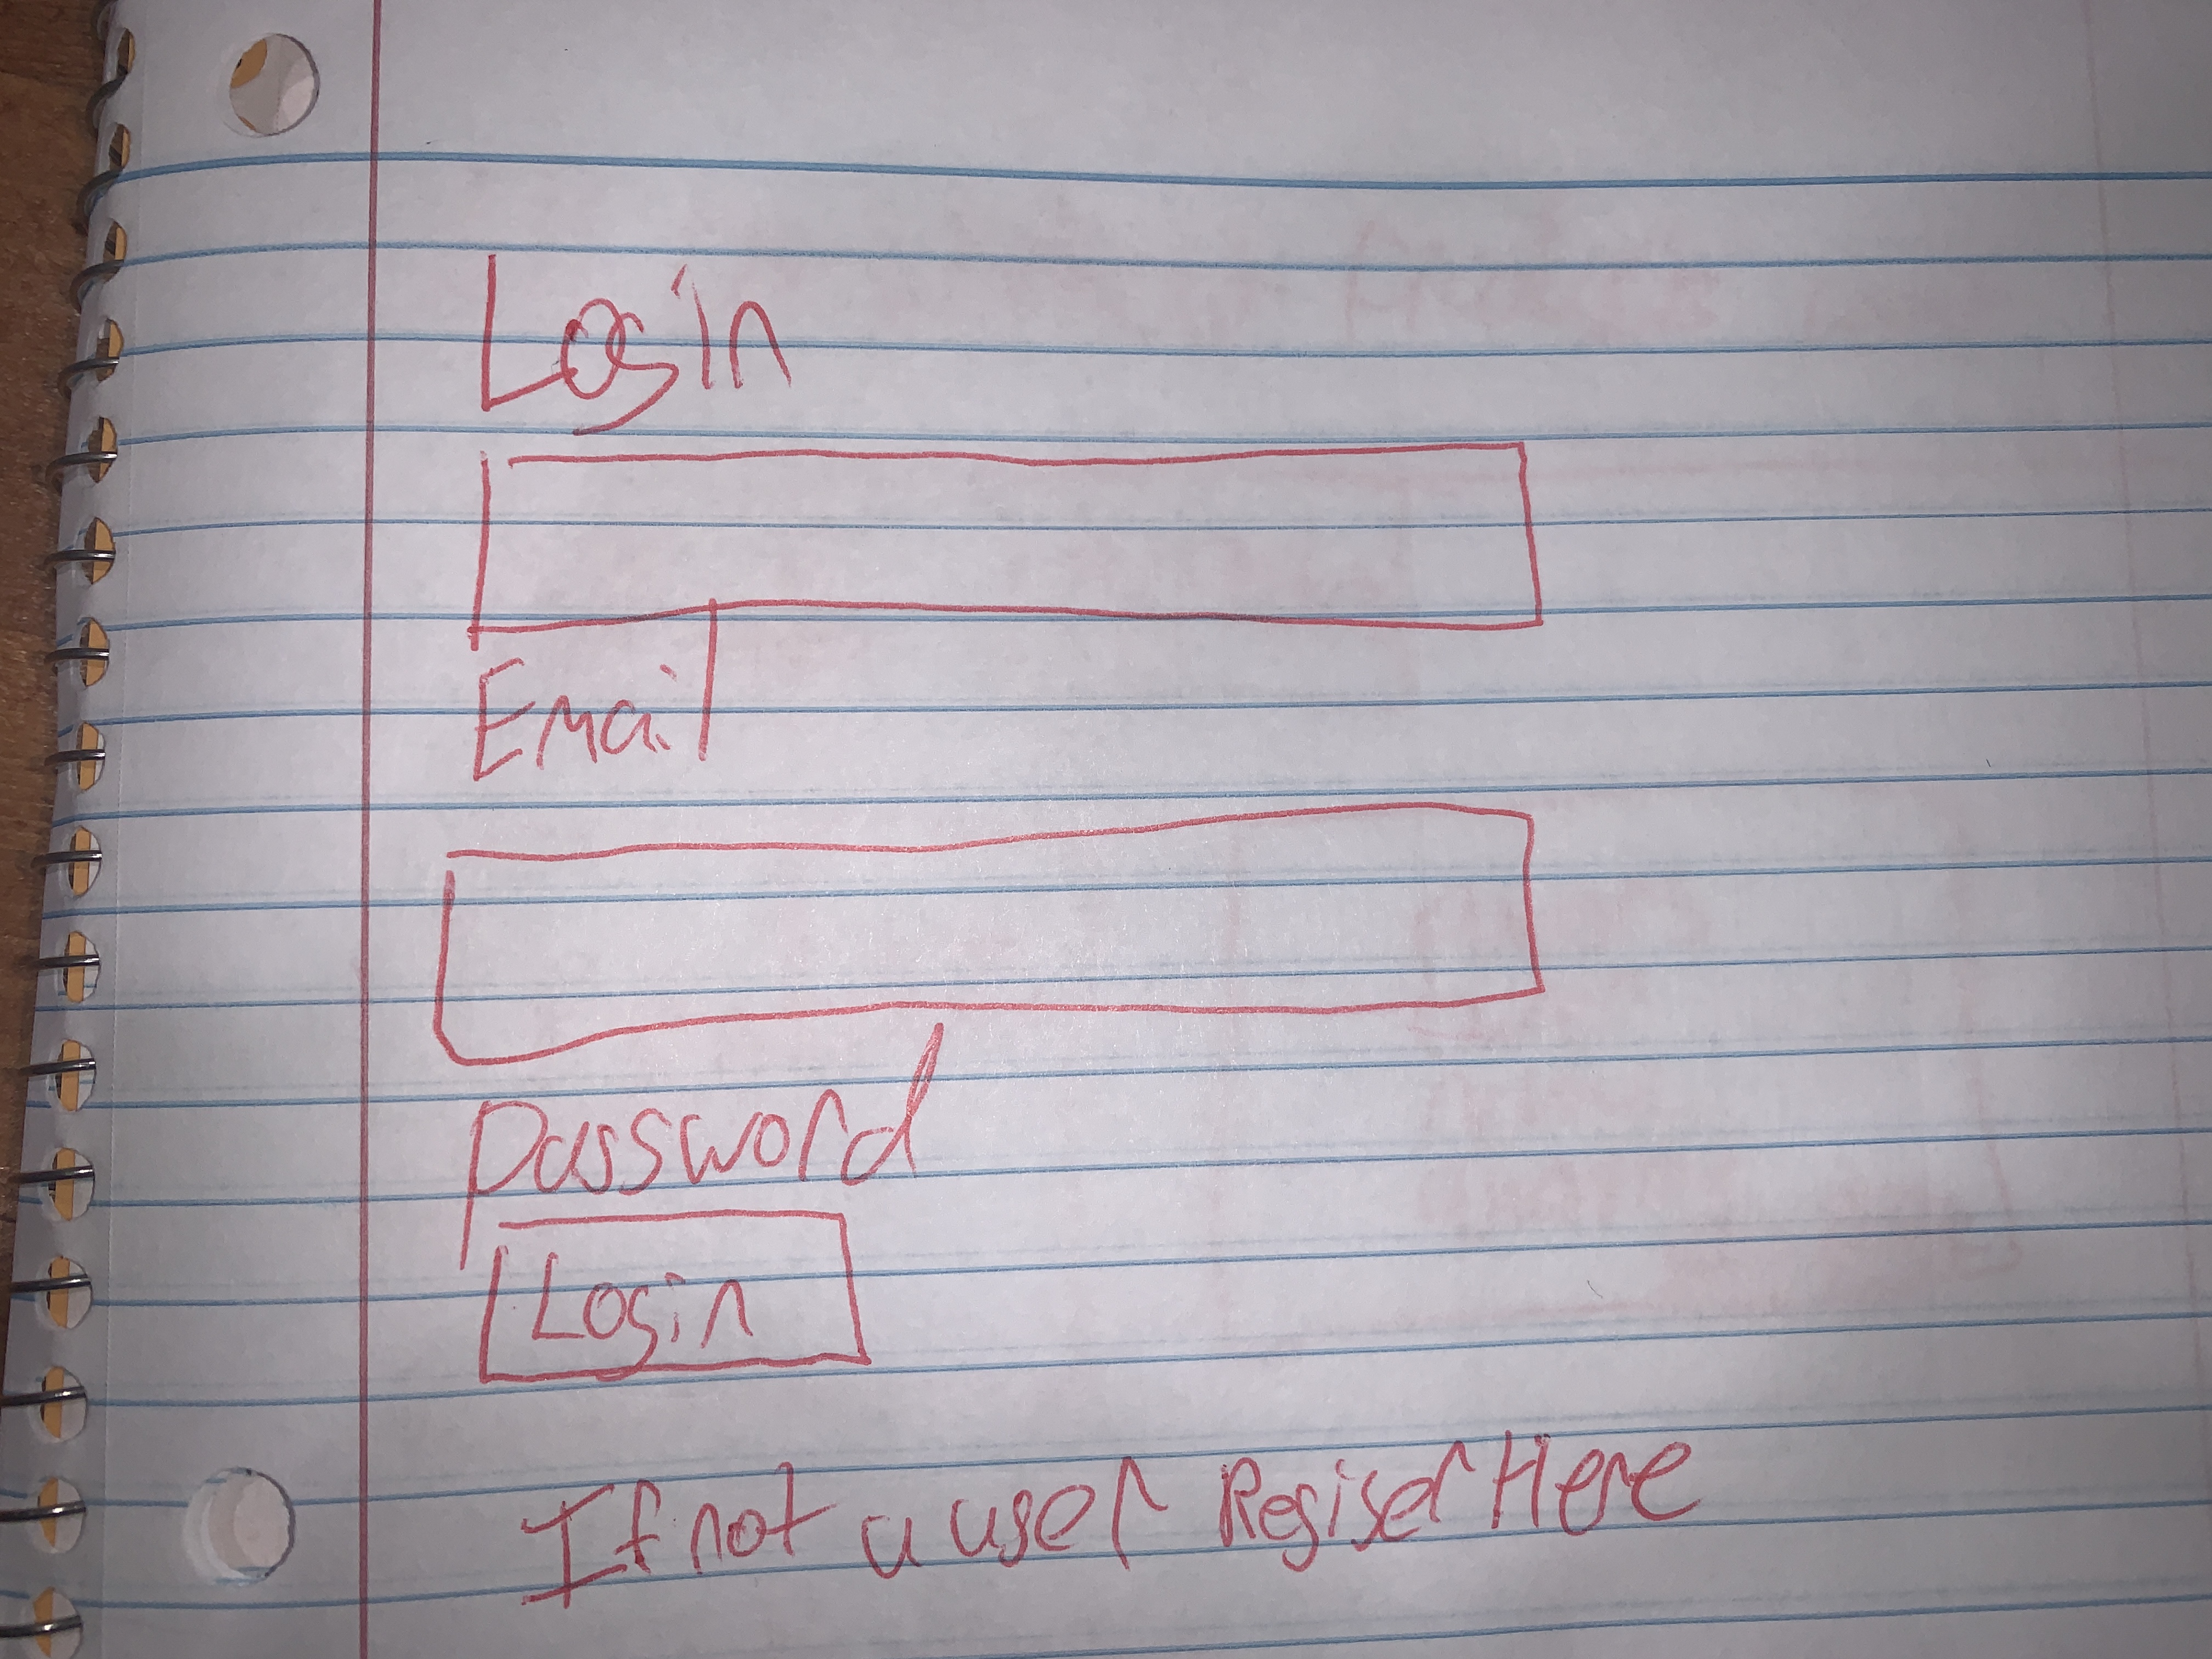 Login
Email
Password
Login
If not a user Regiser Here